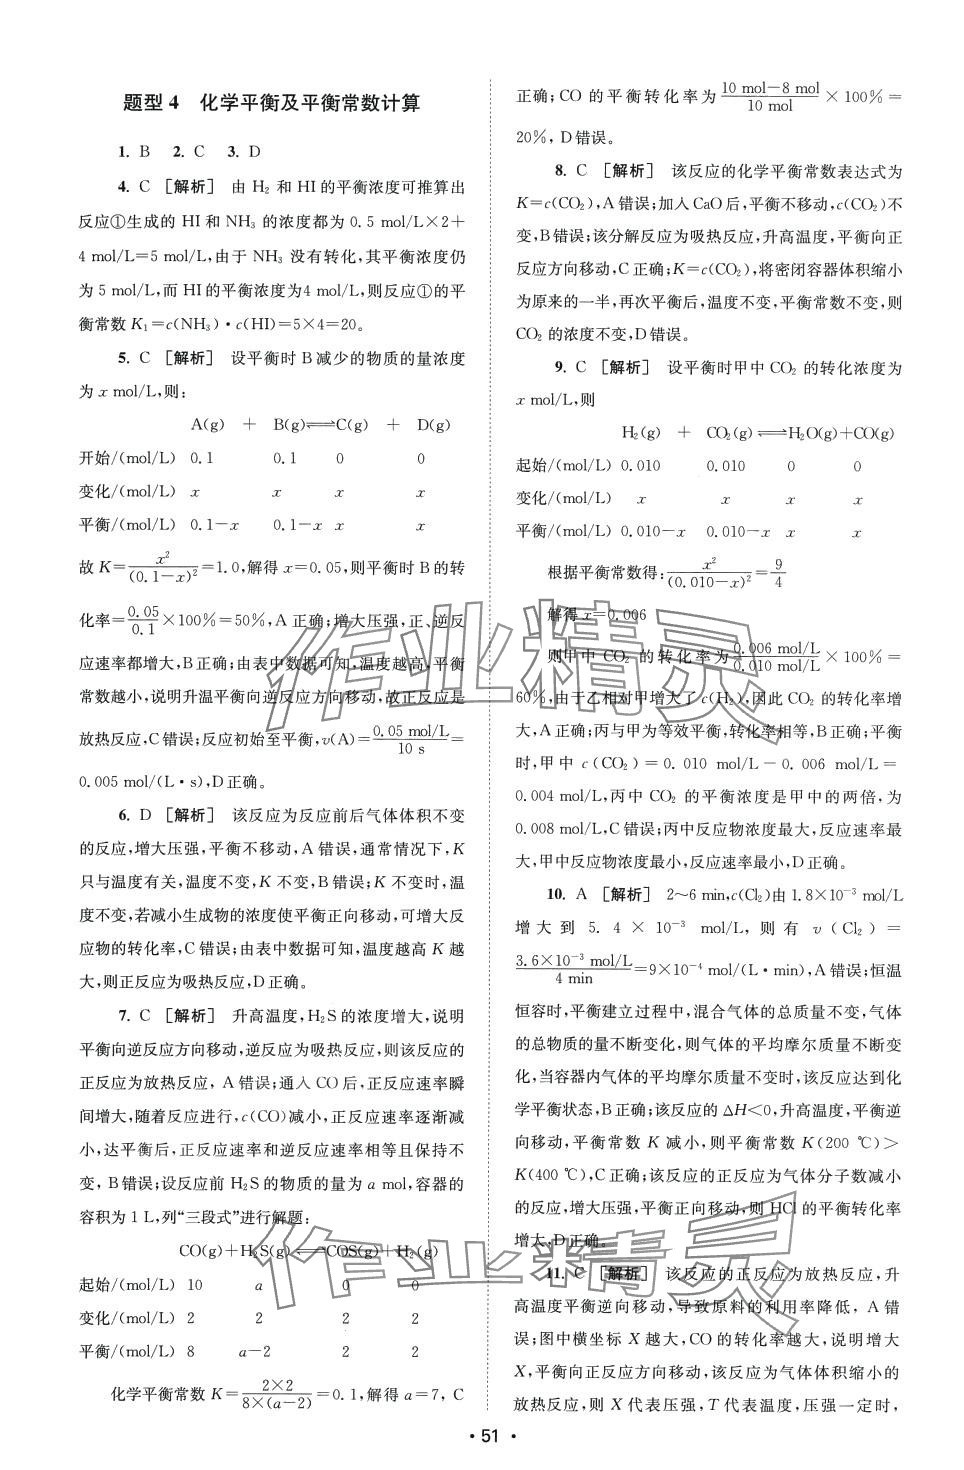 题型 4　化学平衡及平衡常数计算
1. B　2. C　3. D
4. C ［解析］ 由 H₂ 和 HI 的平衡浓度可推算出
反应①生成的 HI 和 NH₃ 的浓度都为 0.5 mol/L×2＋
4 mol/L=5 mol/L,由于 NH₃ 没有转化,其平衡浓度仍
为 5 mol/L,而 HI 的平衡浓度为4 mol/L,则反应①的平
衡常数 K₁=c(NH₃)·c(HI)=5×4=20。
5. C ［解析］ 设平衡时 B 减少的物质的量浓度
为 x mol/L,则:
A(g) ＋ B(g)⇌C(g) ＋ D(g)
开始/(mol/L) 0.1 0.1 0 0
变化/(mol/L) x x x x
平衡/(mol/L) 0.1－x 0.1－x x x
故 K=x²/(0.1－x)²=1.0,解得 x=0.05,则平衡时 B 的转
化率=0.05/0.1×100%=50%,A 正确;增大压强,正、逆反
应速率都增大,B 正确;由表中数据可知,温度越高,平衡
常数越小,说明升温平衡向逆反应方向移动,故正反应是
放热反应,C 错误;反应初始至平衡,v(A)=0.05 mol/L/10 s=
0.005 mol/(L·s),D 正确。
6. D ［解析］ 该反应为反应前后气体体积不变
的反应,增大压强,平衡不移动,A 错误,通常情况下,K
只与温度有关,温度不变,K 不变,B 错误;K 不变时,温
度不变,若减小生成物的浓度使平衡正向移动,可增大反
应物的转化率,C 错误;由表中数据可知,温度越高 K 越
大,则正反应为吸热反应,D 正确。
7. C ［解析］ 升高温度,H₂S 的浓度增大,说明
平衡向逆反应方向移动,逆反应为吸热反应,则该反应的
正反应为放热反应, A 错误;通入 CO 后,正反应速率瞬
间增大,随着反应进行,c(CO)减小,正反应速率逐渐减
小,达平衡后,正反应速率和逆反应速率相等且保持不
变, B 错误;设反应前 H₂S 的物质的量为 a mol,容器的
容积为 1 L,列“三段式”进行解题:
CO(g)＋H₂S(g)⇌COS(g)＋H₂(g)
起始/(mol/L) 10 a 0 0
变化/(mol/L) 2 2 2 2
平衡/(mol/L) 8 a－2 2 2
化学平衡常数 K=2×2/8×(a－2)=0.1,解得 a=7, C
正确;CO 的平衡转化率为10 mol－8 mol/10 mol×100%=
20%, D 错误。
8. C ［解析］ 该反应的化学平衡常数表达式为
K=c(CO₂),A 错误;加入 CaO 后,平衡不移动,c(CO₂)不
变,B 错误;该分解反应为吸热反应,升高温度,平衡向正
反应方向移动,C 正确;K=c(CO₂),将密闭容器体积缩小
为原来的一半,再次平衡后,温度不变,平衡常数不变,则
CO₂ 的浓度不变,D 错误。
9. C ［解析］ 设平衡时甲中 CO₂ 的转化浓度为
x mol/L,则
H₂(g) ＋ CO₂(g)⇌H₂O(g)＋CO(g)
起始/(mol/L) 0.010 0.010 0 0
变化/(mol/L) x x x x
平衡/(mol/L) 0.010－x 0.010－x x x
根据平衡常数得:x²/(0.010－x)²=9/4
解得 x=0.006
则甲中 CO₂ 的转化率为0.006 mol/L/0.010 mol/L×100%=
60%,由于乙相对甲增大了 c(H₂),因此 CO₂ 的转化率增
大,A 正确;丙与甲为等效平衡,转化率相等,B 正确;平衡
时,甲中 c(CO₂)=0.010 mol/L－0.006 mol/L=
0.004 mol/L,丙中 CO₂ 的平衡浓度是甲中的两倍,为
0.008 mol/L,C 错误;丙中反应物浓度最大,反应速率最
大,甲中反应物浓度最小,反应速率最小,D 正确。
10. A ［解析］ 2～6 min,c(Cl₂)由 1.8×10⁻³ mol/L
增大到 5.4×10⁻³ mol/L,则有 v(Cl₂)=
3.6×10⁻³ mol/L/4 min=9×10⁻⁴ mol/(L·min),A 错误;恒温
恒容时,平衡建立过程中,混合气体的总质量不变,气体
的总物质的量不断变化,则气体的平均摩尔质量不断变
化,当容器内气体的平均摩尔质量不变时,该反应达到化
学平衡状态,B 正确;该反应的 ΔH<0,升高温度,平衡逆
向移动,平衡常数 K 减小,则平衡常数 K(200 ℃)>
K(400 ℃),C 正确;该反应的正反应为气体分子数减小
的反应,增大压强,平衡正向移动,则 HCl 的平衡转化率
增大,D 正确。
11. C ［解析］ 该反应的正反应为放热反应,升
高温度平衡逆向移动,导致原料的利用率降低, A 错
误;图中横坐标 X 越大,CO 的转化率越大,说明增大
X,平衡向正反应方向移动,该反应为气体体积缩小的
放热反应,则 X 代表压强,T 代表温度,压强一定时,
· 51 ·
作业精灵
作业精灵